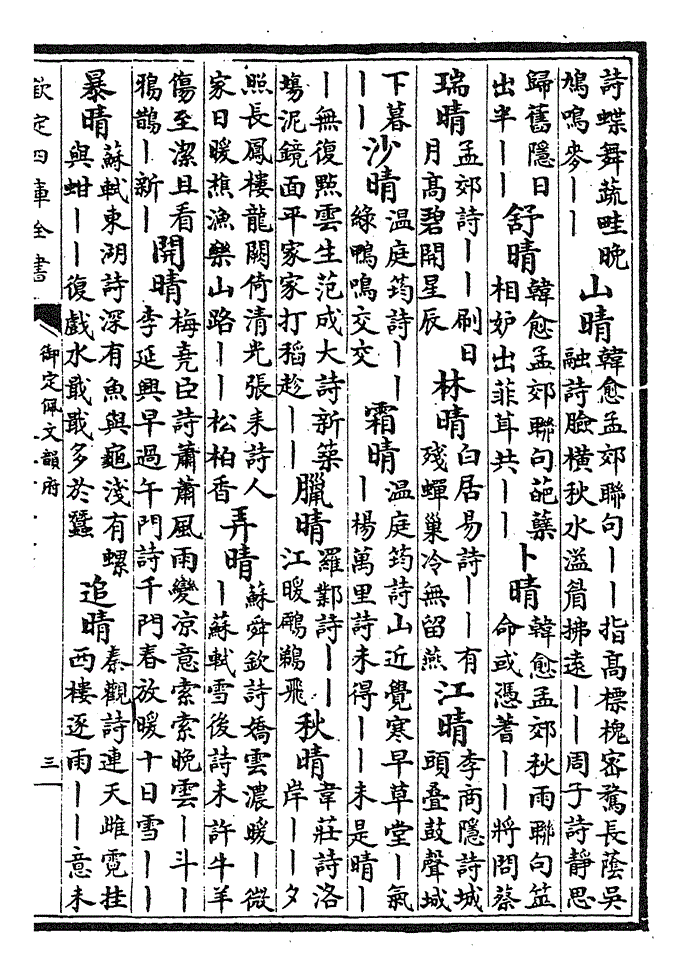 詩蝶舞蔬畦晚鳩鳴麥｜｜山晴韓愈孟郊聯句｜｜指高標槐密鶩長蔭吳融詩臉橫秋水溢眉拂遠｜｜周子詩靜思
歸舊隱日出半｜｜舒晴韓愈孟郊聯句葩蘂相妒出菲茸共｜｜卜晴韓愈孟郊秋雨聯句筮命或憑蓍｜｜將問蔡
瑞晴孟郊詩｜｜刷日月高碧開星辰林晴白居易詩｜｜有殘蟬巢冷無留燕江晴李商隱詩城頭疊鼓聲城
下暮｜｜沙晴溫庭筠詩｜｜綠鴨鳴交交霜晴溫庭筠詩山近覺寒早草堂｜氣｜楊萬里詩未得｜｜未是晴｜
｜無復點雲生范成大詩新築塲泥鏡面平家家打稻趁｜｜臘晴羅鄴詩｜｜江暖鸕鷀飛秋晴韋莊詩洛岸｜｜夕
照長鳳樓龍闕倚清光張耒詩人家日暖樵漁樂山路｜｜松柏香弄晴蘇舜欽詩嬌雲濃暖｜微｜蘇軾雪後詩未許牛羊
傷至潔且看鴉鵲｜新｜開晴梅堯臣詩蕭蕭風雨變凉意索索晚雲｜斗｜李延興早過午門詩千門春放暖十日雪｜｜
暴晴蘇軾東湖詩深有魚與龜淺有螺與蚶｜｜復戲水戢戢多於蠶追晴秦觀詩連天雌霓挂西樓逐雨｜｜意未
欽定四庫全書
御定佩文韻府
三